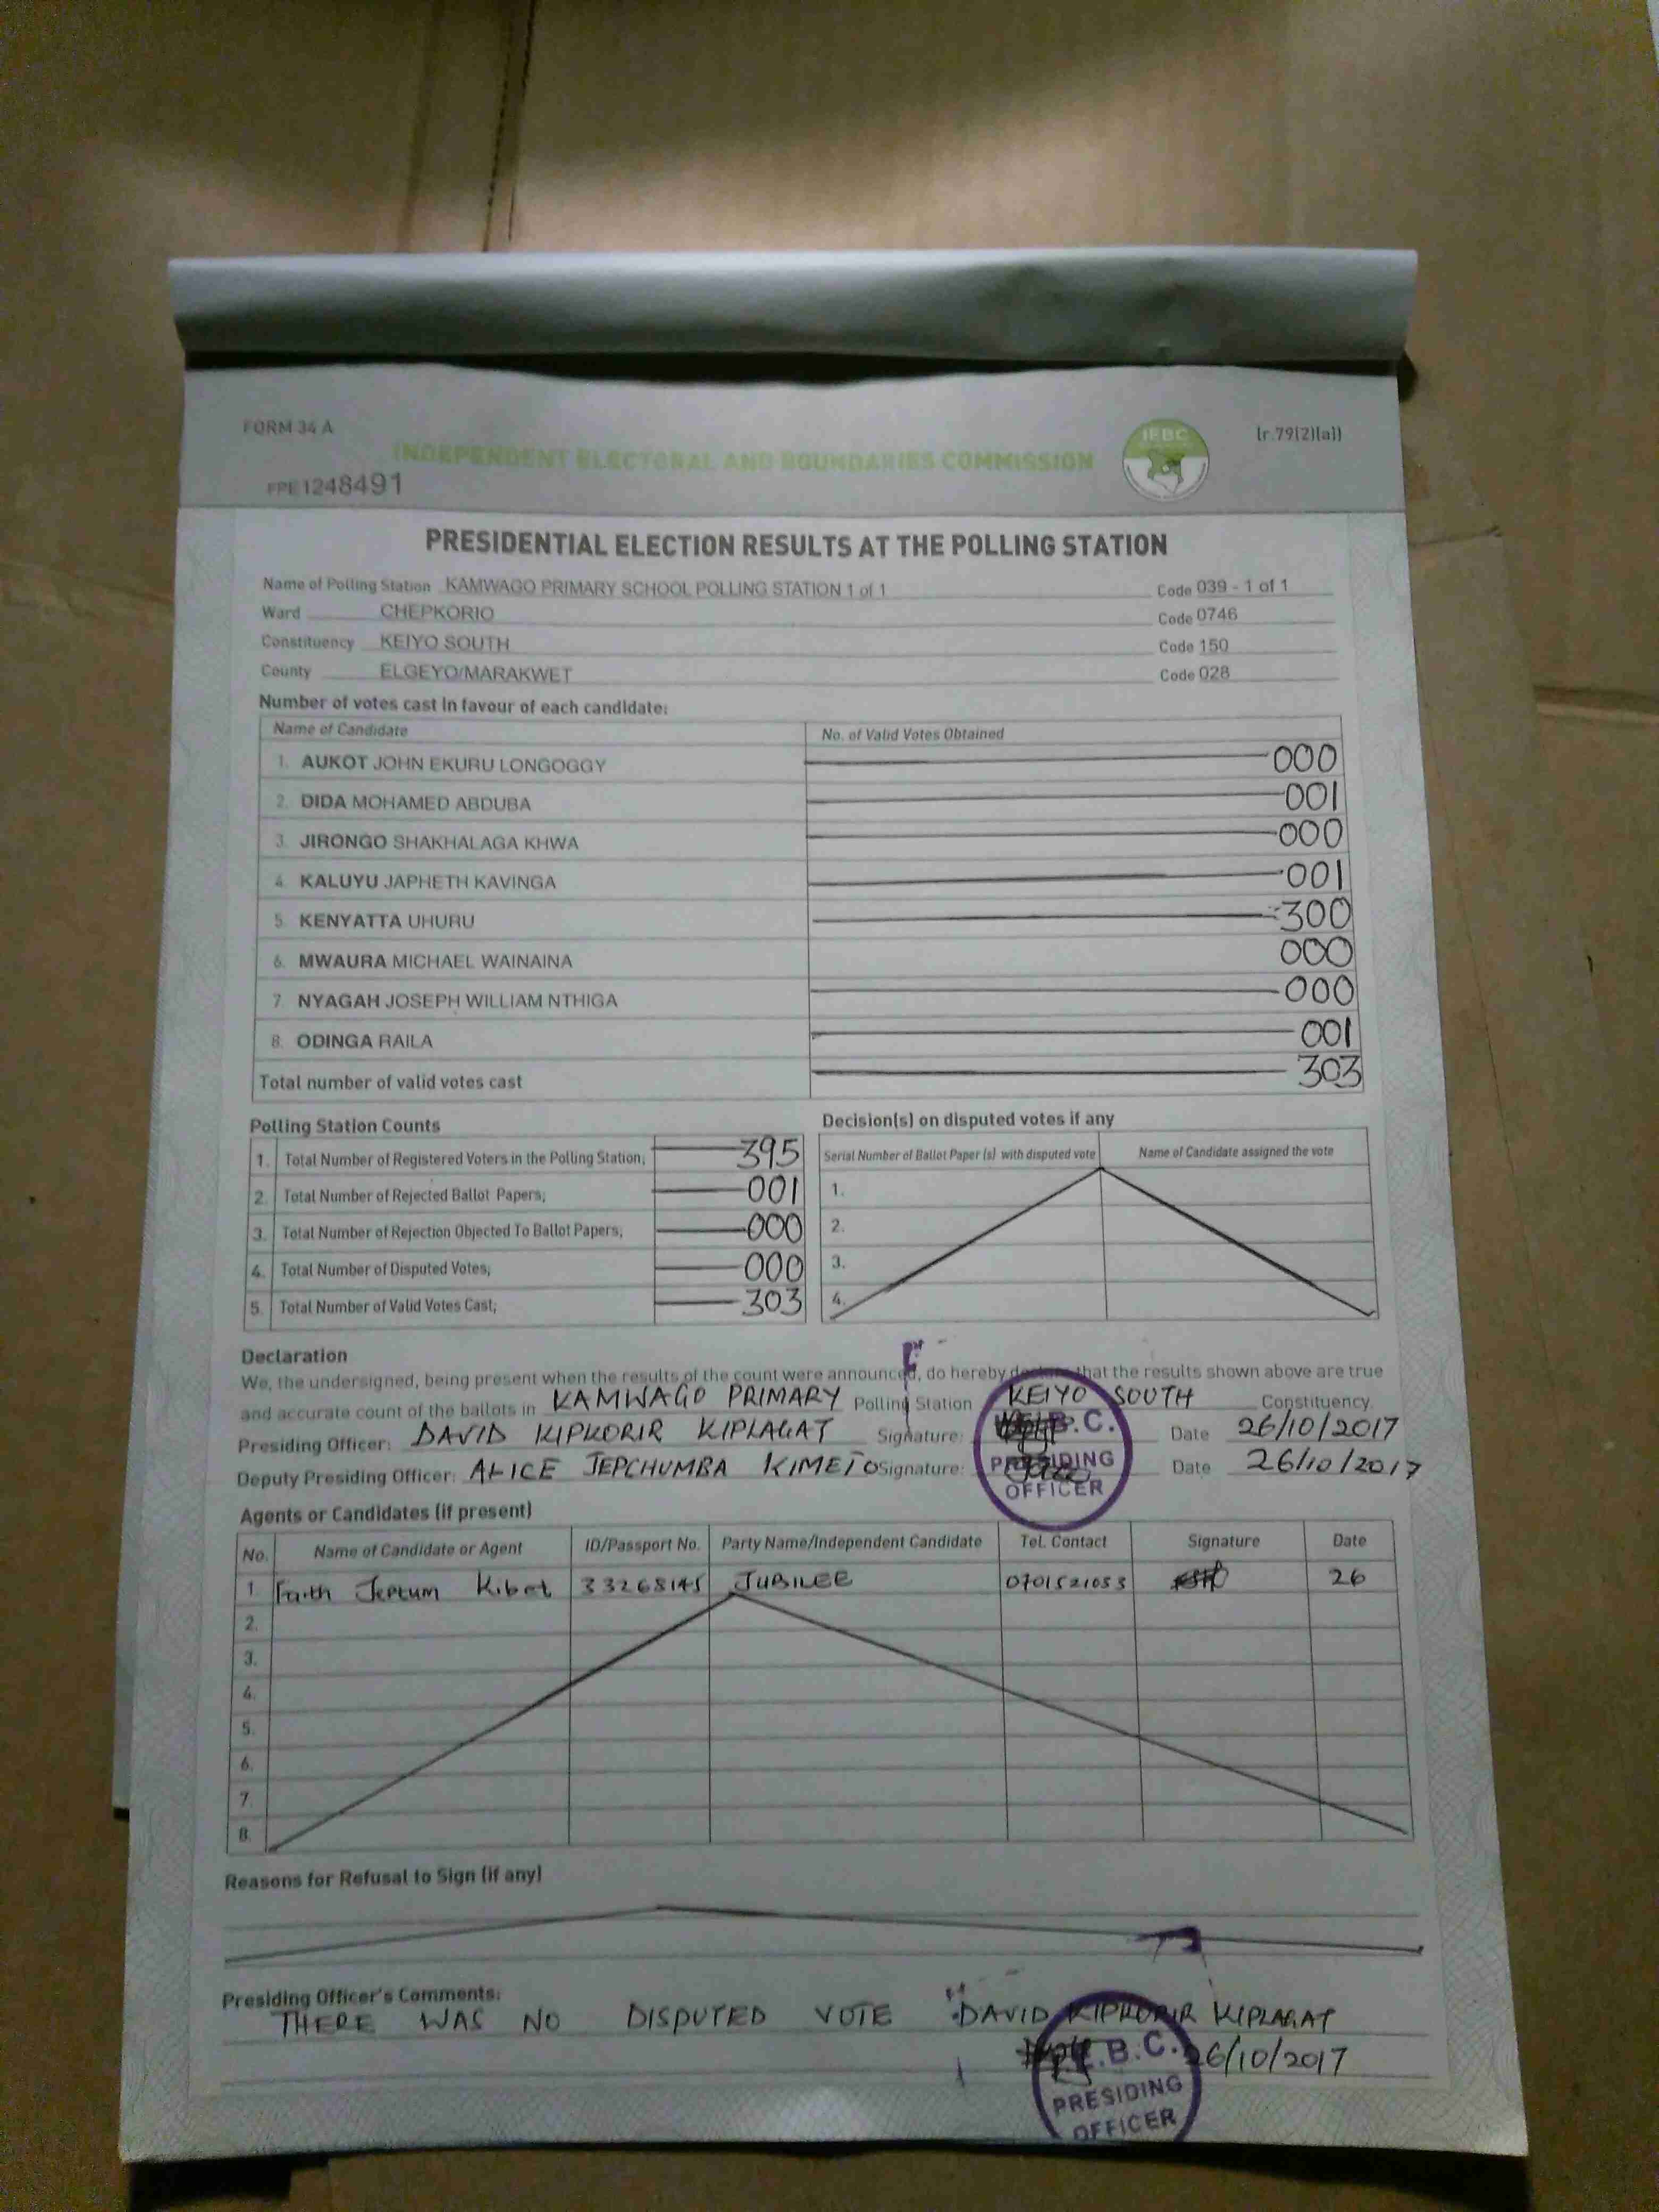 FORM 34 A
[r.79(2)(a)]
IEBC
INDEPENDENT ELECTORAL AND BOUNDARIES COMMISSION
FPE 1248491
PRESIDENTIAL ELECTION RESULTS AT THE POLLING STATION
Name of Polling Station KAMWAGO PRIMARY SCHOOL POLLING STATION 1 of 1 Code 039 - 1 of 1
Ward CHEPKORIO Code 0746
Constituency KEIYO SOUTH Code 150
County ELGEYO/MARAKWET Code 028
Number of votes cast in favour of each candidate:
Name of Candidate No. of Valid Votes Obtained
1. AUKOT JOHN EKURU LONGOGGY 000
2. DIDA MOHAMED ABDUBA 001
3. JIRONGO SHAKHALAGA KHWA 000
4. KALUYU JAPHETH KAVINGA 001
5. KENYATTA UHURU 300
6. MWAURA MICHAEL WAINAINA 000
7. NYAGAH JOSEPH WILLIAM NTHIGA 000
8. ODINGA RAILA 001
Total number of valid votes cast 303
Polling Station Counts
1. Total Number of Registered Voters in the Polling Station; 395
2. Total Number of Rejected Ballot Papers; 001
3. Total Number of Rejection Objected To Ballot Papers; 000
4. Total Number of Disputed Votes; 000
5. Total Number of Valid Votes Cast; 303
Decision(s) on disputed votes if any
Serial Number of Ballot Paper (s) with disputed vote Name of Candidate assigned the vote
1.
2.
3.
4.
Declaration
We, the undersigned, being present when the results of the count were announced, do hereby declare that the results shown above are true
and accurate count of the ballots in KAMWAGO PRIMARY Polling Station KEIYO SOUTH Constituency.
Presiding Officer: DAVID KIPKORIR KIPLAGAT Signature: Date 26/10/2017
Deputy Presiding Officer: ALICE JEPCHUMBA KIMETO Signature: Date 26/10/2017
B.C.
PRESIDING
OFFICER
Agents or Candidates (if present)
No. Name of Candidate or Agent ID/Passport No. Party Name/Independent Candidate Tel. Contact Signature Date
1 Faith Jeptum Kibet 33268145 JUBILEE 0701521053 26
2.
3.
4.
5.
6.
7.
8.
Reasons for Refusal to Sign (if any)
Presiding Officer's Comments:
THERE WAS NO DISPUTED VOTE DAVID KIPKORIR KIPLAGAT
26/10/2017
B.C.
PRESIDING
OFFICER